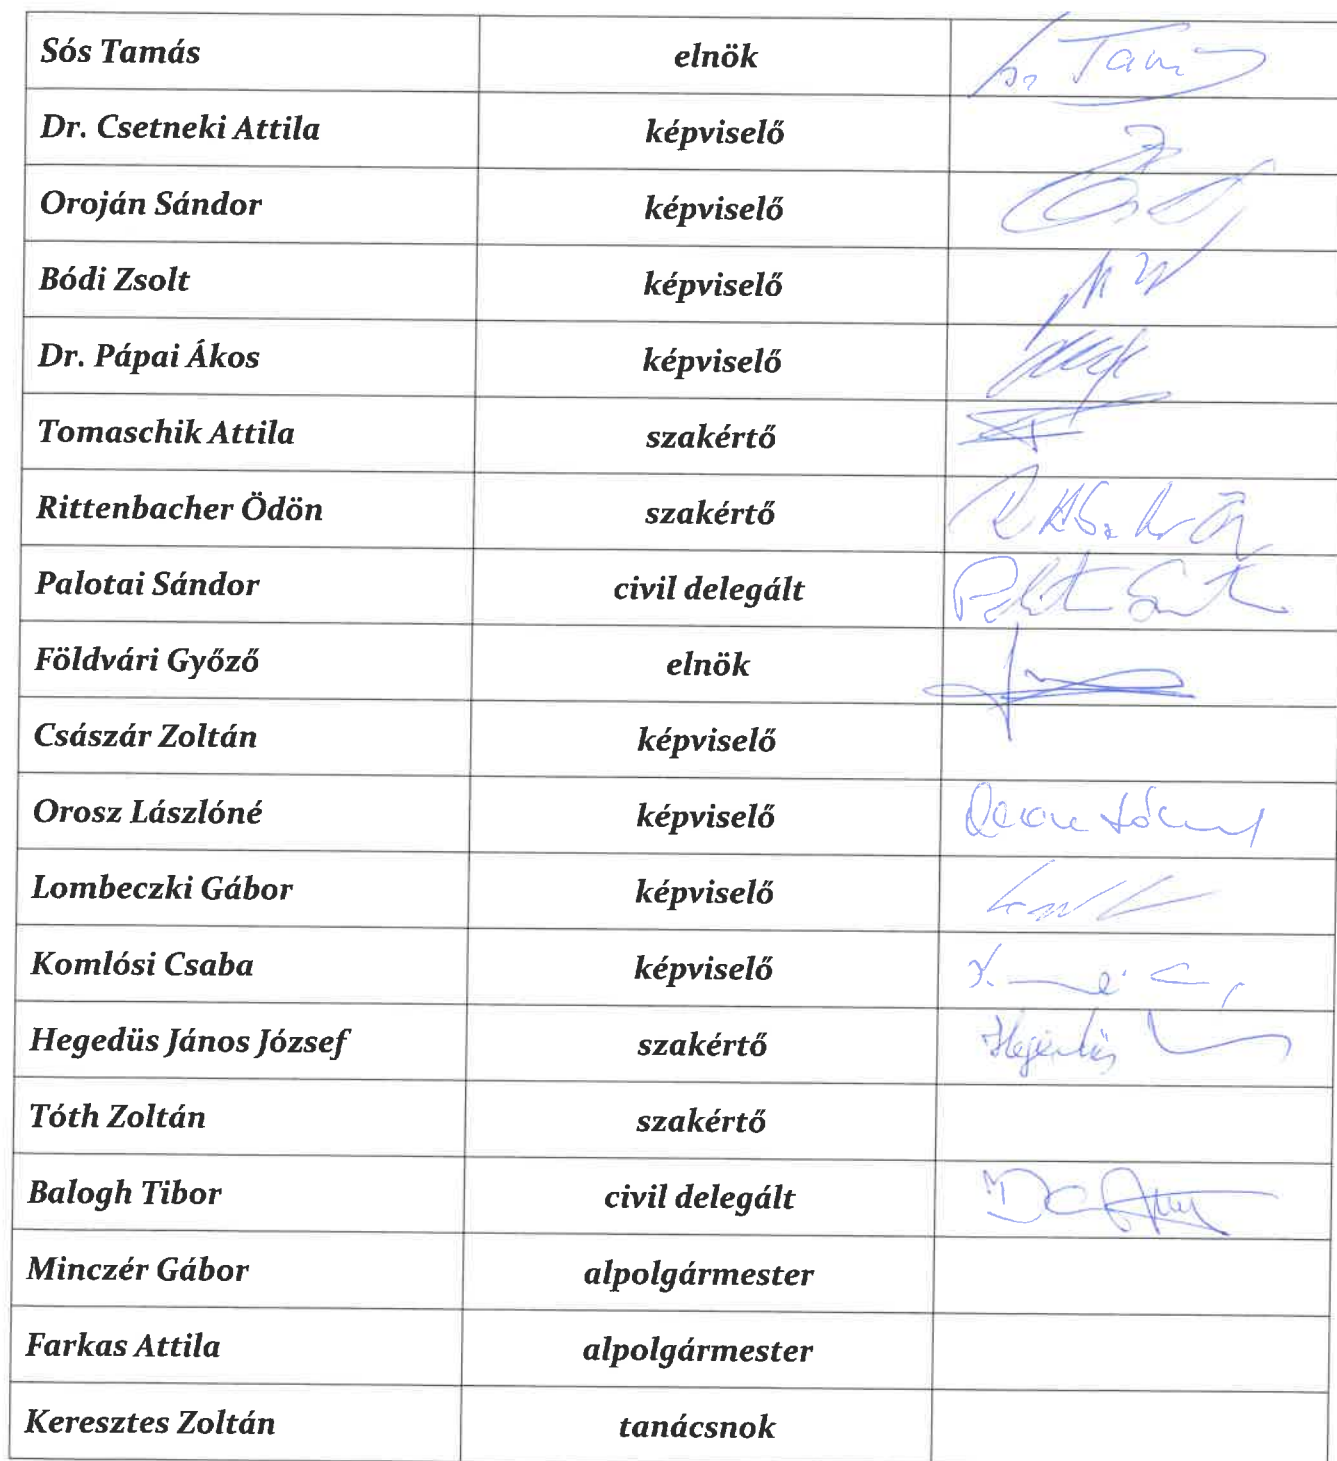 Sós Tamás elnök
Dr. Csetneki Attila képviselő
Oroján Sándor képviselő
Bódi Zsolt képviselő
Dr. Pápai Ákos képviselő
Tomaschik Attila szakértő
Rittenbacher Ödön szakértő
Palotai Sándor civil delegált
Földvári Győző elnök
Császár Zoltán képviselő
Orosz Lászlóné képviselő
Lombeczki Gábor képviselő
Komlósi Csaba képviselő
Hegedüs János József szakértő
Tóth Zoltán szakértő
Balogh Tibor civil delegált
Minczér Gábor alpolgármester
Farkas Attila alpolgármester
Keresztes Zoltán tanácsnok